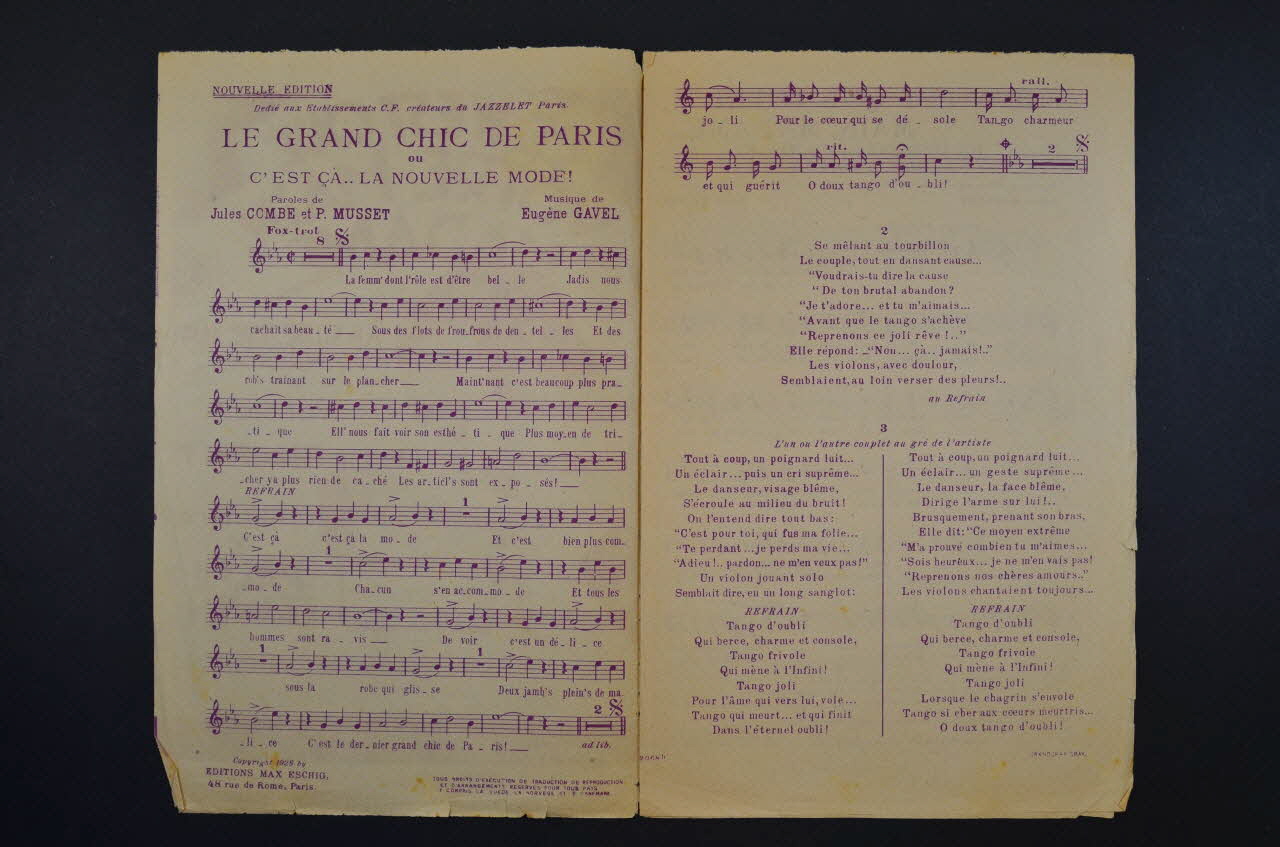 NOUVELLE EDITION
Dedié aux Etablissements C.F. créateurs du JAZZELET Paris.
LE GRAND CHIC DE PARIS
ou
C'EST ÇÀ.. LA NOUVELLE MODE!
Paroles de
Jules COMBE et P. MUSSET
Musique de
Eugène GAVEL
Fox-trot
8
La femm' dont l'rôle est d'être bel _ le Jadis nous
cachait sa beau _ té Sous des flots de frou_frous de den _ tel _ les Et des
rob's trainant sur le plan_cher Maint'nant c'est beaucoup plus pra_
_ti _ que Ell' nous fait voir son esthé _ ti _ que Plus moy_en de tri_
_cher y a plus rien de ca _ ché Les ar_tic'l's sont ex _ po _ sés!
REFRAIN
1
C'est çà c'est çà la mo _ de Et c'est bien plus com_
1
_mo _ de Cha_cun s'en ac_com_mo _ de Et tous les
hommes sont ra _ vis De voir c'est un dé _ li _ ce
1 1
sous la robe qui glis _ se Deux jamb's plein's de ma_
2
_li _ ce C'est le der_nier grand chic de Pa _ ris!
ad lib.
Copyright 1928 by
EDITIONS MAX ESCHIG,
48 rue de Rome, Paris.
TOUS DROITS D'EXECUTION DE TRADUCTION DE REPRODUCTION
ET D'ARRANGEMENTS RESERVES POUR TOUS PAYS
Y COMPRIS LA SUEDE LA NORVEGE ET LE DANEMARK
rall.
jo _ li Pour le cœur qui se dé _ sole Tan_go charmeur
rit. 2
et qui guérit O doux tango d'ou _ bli!
2
Se mêlant au tourbillon
Le couple, tout en dansant cause...
"Voudrais-tu dire la cause
"De ton brutal abandon?
"Je t'adore... et tu m'aimais...
"Avant que le tango s'achève
"Reprenons ce joli rêve!.."
Elle répond: _"Non... çà.. jamais!.."
Les violons, avec douleur,
Semblaient, au loin verser des pleurs!..
au Refrain
3
L'un ou l'autre couplet au gré de l'artiste
Tout à coup, un poignard luit...
Un éclair... puis un cri suprême...
Le danseur, visage blême,
S'écroule au milieu du bruit!
On l'entend dire tout bas:
"C'est pour toi, qui fus ma folie...
"Te perdant... je perds ma vie...
"Adieu!.. pardon... ne m'en veux pas!"
Un violon jouant solo
Semblait dire, en un long sanglot:
REFRAIN
Tango d'oubli
Qui berce, charme et console,
Tango frivole
Qui mène à l'Infini!
Tango joli
Pour l'âme qui vers lui, vole...
Tango qui meurt... et qui finit
Dans l'éternel oubli!
Tout à coup, un poignard luit...
Un éclair... un geste suprême...
Le danseur, la face blême,
Dirige l'arme sur lui!..
Brusquement, prenant son bras,
Elle dit: "Ce moyen extrême
"M'a prouvé combien tu m'aimes...
"Sois heureux... je ne m'en vais pas!
"Reprenons nos chères amours.."
Les violons chantaient toujours...
REFRAIN
Tango d'oubli
Qui berce, charme et console,
Tango frivole
Qui mène à l'Infini!
Tango joli
Lorsque le chagrin s'envole
Tango si cher aux cœurs meurtris...
O doux tango d'oubli!